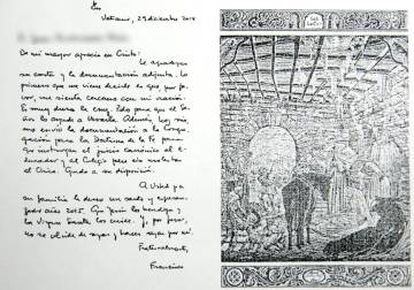 Vaticano, 29 diciembre 2014
De mi mayor aprecio en Cristo:
Le agradezco
su carta y la documentación adjunta. Lo
primero que me viene decirle es que, por fa-
vor, me sienta cercano con mi oración.
Es muy dura la cruz. Pido para que el Se-
ñor lo ayude a llevarla. Además, hoy mis-
mo envío la documentación a la Congre-
gación para la Doctrina de la Fe para
que
el juicio canónico al e-
y al Colegio
Quedo a su disposición.
A Usted y a
su familia le deseo un santo y
2015. Que Jesús los bendiga y
la Virgen Santa los cuide. Y, por favor,
no se olvide de rezar y hacer rezar por mí.
Fraternalmente,
Francisco